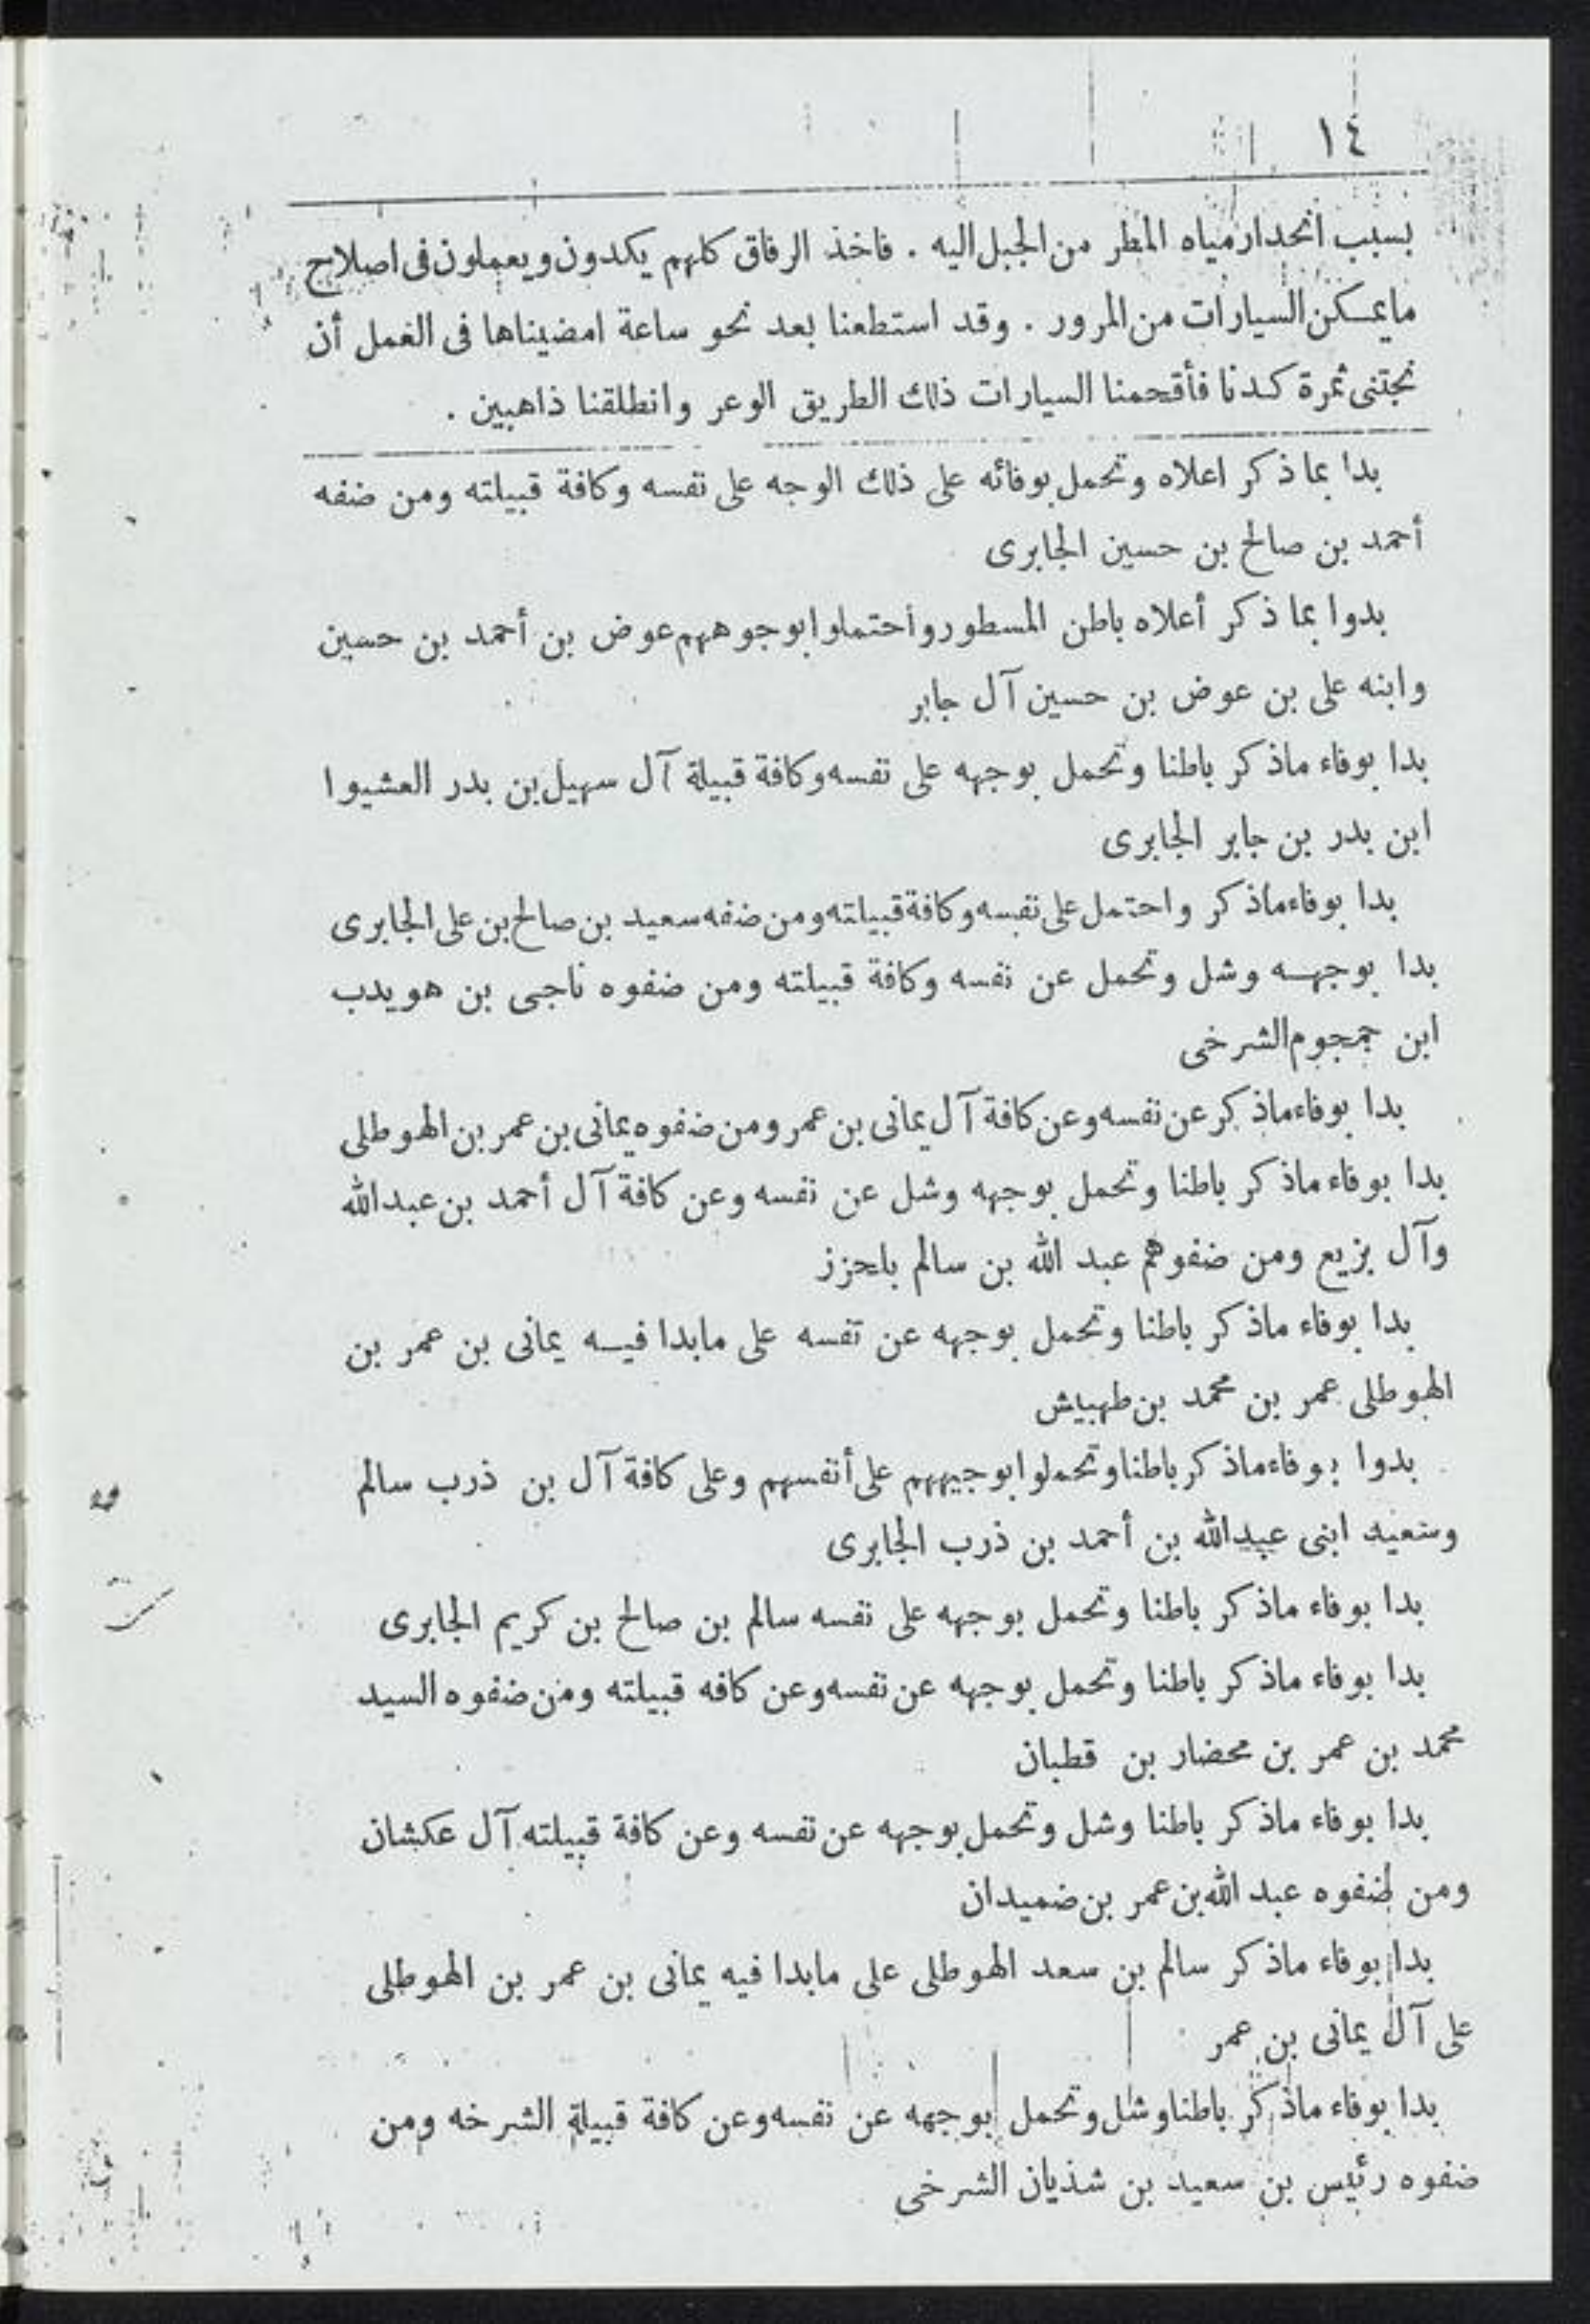 ١٤
بسبب انحدار مياه المطر من الجبل اليه . فاخذ الرفاق كلهم يكدون ويعملون فى اصلاح
ما يمكن السيارات من المرور . وقد استطعنا بعد نحو ساعة امضيناها فى العمل أن
نجتنى ثمرة كدنا فأقحمنا السيارات ذلك الطريق الوعر وانطلقنا ذاهبين .
بدا بما ذكر اعلاه وتحمل بوفائه على ذلك الوجه على نفسه وكافة قبيلته ومن ضفه
أحمد بن صالح بن حسين الجابرى
بدوا بما ذكر أعلاه باطن المسطور واحتملوا بوجوههم عوض بن أحمد بن حسين
وابنه على بن عوض بن حسين آل جابر
بدا بوفاء ماذكر باطنا وتحمل بوجهه على نفسه وكافة قبيلة آل سهيل بن بدر العشيوا
ابن بدر بن جابر الجابرى
بدا بوفاء ماذكر واحتمل على نفسه وكافة قبيلته ومن ضفه سعيد بن صالح بن على الجابرى
بدا بوجهه وشل وتحمل عن نفسه وكافة قبيلته ومن ضفوه ناجى بن هويدب
ابن جمجوم الشرخى
بدا بوفاء ماذكر عن نفسه وعن كافة آل يمانى بن عمر ومن ضفوه يمانى بن عمر بن الهوطلى
بدا بوفاء ماذكر باطنا وتحمل بوجهه وشل عن نفسه وعن كافة آل أحمد بن عبدالله
وآل بزيع ومن ضفوهم عبد الله بن سالم باحزز
بدا بوفاء ماذكر باطنا وتحمل بوجهه عن نفسه على مابدا فيه يمانى بن عمر بن
الهوطلى عمر بن محمد بن طهبيش
بدوا بوفاء ماذكر باطنا وتحملوا بوجيههم على أنفسهم وعلى كافة آل بن ذرب سالم
وسعيد ابنى عبدالله بن أحمد بن ذرب الجابرى
بدا بوفاء ماذكر باطنا وتحمل بوجهه على نفسه سالم بن صالح بن كريم الجابرى
بدا بوفاء ماذكر باطنا وتحمل بوجهه عن نفسه وعن كافه قبيلته ومن ضفوه السيد
محمد بن عمر بن محضار بن قطبان
بدا بوفاء ماذكر باطنا وشل وتحمل بوجهه عن نفسه وعن كافة قبيلته آل عكشان
ومن ضفوه عبد الله بن عمر بن ضميدان
بدا بوفاء ماذكر سالم بن سعد الهوطلى على مابدا فيه يمانى بن عمر بن الهوطلى
على آل يمانى بن عمر
بدا بوفاء ماذكر باطنا وشل وتحمل بوجهه عن نفسه وعن كافة قبيلة الشرخه ومن
ضفوه رئيس بن سعيد بن شذيان الشرخى